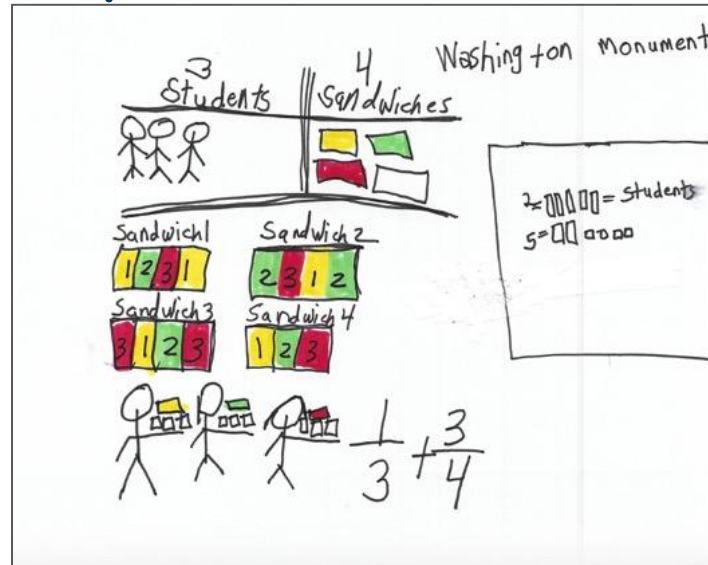 3
Students
4
Sandwiches
Washington Monument
Sandwich1
1 2 3 1
Sandwich 2
2 3 1 2
Sandwich3
3 1 2 3
Sandwich 4
1 2 3
1/3 + 3/4
2= = Students
5=